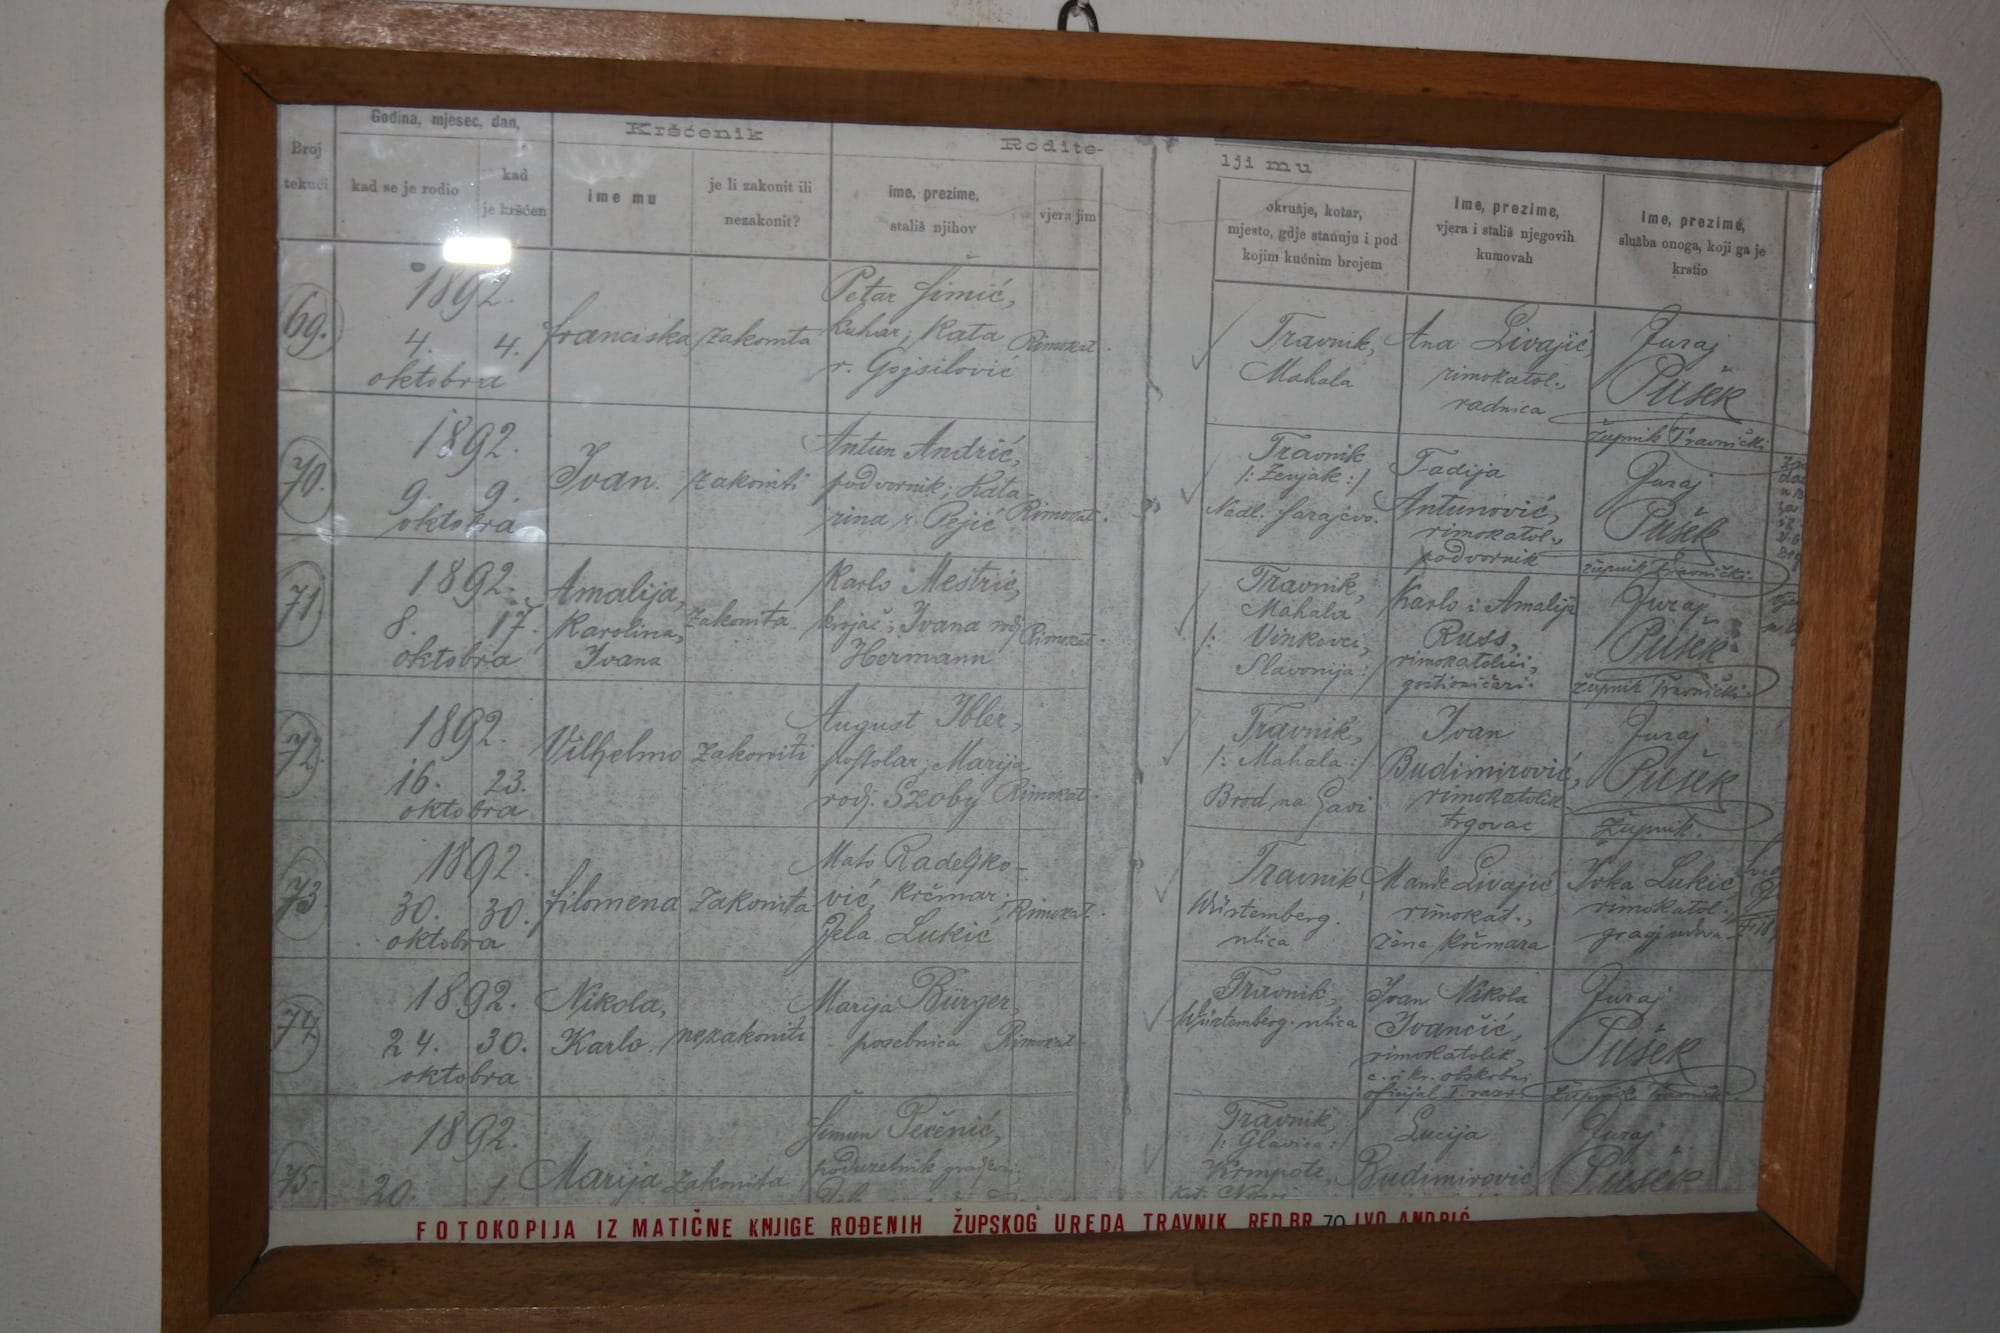 Godina, mjesec, dan,
Kršćenik
Rodite-
lji mu
Broj
tekući
kad se je rodio
kad
je kršćen
ime mu
je li zakonit ili
nezakonit?
ime, prezime,
stališ njihov
vjera jim
okružje, kotar,
mjesto, gdje stanuju i pod
kojim kućnim brojem
Ime, prezime,
vjera i stališ njegovih
kumovah
Ime, prezime,
služba onoga, koji ga je
krstio
69.
1892.
4. 4.
oktobra
Franciska
zakonita
Petar Šimić,
kuhar; Kata
r. Gojsilović
Rimokat.
Travnik,
Mahala
Ana Livajić,
rimokatol.,
radnica
Juraj
Pušek
župnik Travnički
70.
1892.
9. 9.
oktobra
Ivan.
zakoniti
Antun Andrić,
podvornik; Kata-
rina r. Pejić
Rimokat.
Travnik
/: Zenjak :/
Nadl. Sarajevo.
Tadija
Antunović,
rimokatol.,
podvornik
Juraj
Pušek
župnik Travnički.
71
1892.
8. 17.
oktobra
Amalija,
Karolina,
Ivana
zakonita
Karlo Meštrić,
krojač; Ivana rodj.
Hermann
Rimokat.
Travnik,
Mahala
/: Vinkovci,
Slavonija :/
Karlo i Amalija
Russ,
rimokatolici,
gostioničari.
Juraj
Pušek
župnik Travnički
72
1892.
16. 23.
oktobra
Vilhelmo
zakoniti
August Ibler,
postolar; Marija
rodj. Szoby
Rimokat.
Travnik,
/: Mahala :/
Brod na Savi
Ivan
Budimirović,
rimokatolik
trgovac
Juraj
Pušek
župnik.
73
1892.
30. 30.
oktobra
Filomena
zakonita
Mato Radeljko-
vić, krčmar;
Jela Lukić
Rimokat.
Travnik,
Würtemberg.
ulica
Mande Livajić
rimokat.,
žena krčmara
Ivka Lukić
rimokatol.,
74
1892.
24. 30.
oktobra
Nikola,
Karlo
nezakoniti
Marija Bürger,
posebnica
Rimokat.
Travnik,
Würtemberg. ulica
Ivan Nikola
Ivančić,
rimokatolik,
oficijal
Juraj
Pušek
župnik Travnički
75.
1892.
20. 1.
Marija
zakonita
Šimun Pečenić,
poduzetnik
Travnik,
/: Glavica :/
Krmpote,
Lucija
Budimirović
Juraj
Pušek
FOTOKOPIJA IZ MATIČNE KNJIGE ROĐENIH ŽUPSKOG UREDA TRAVNIK RED.BR. 70 IVO ANDRIĆ